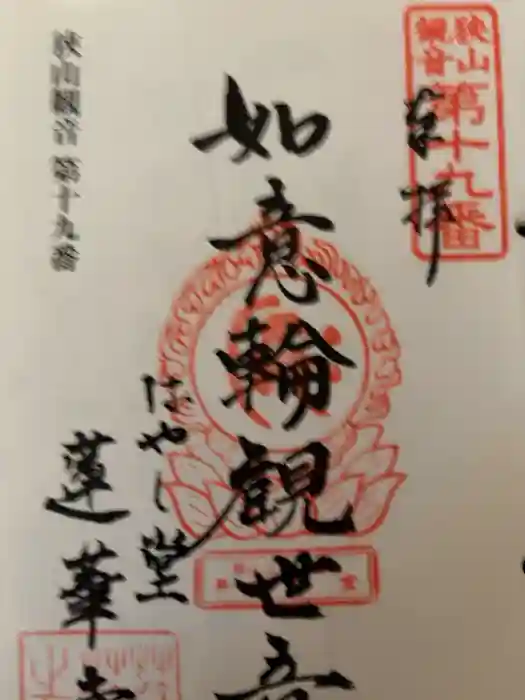 狭山
観音
第十九番
奉拝
如意輪観世音
はやし堂
蓮華
狭山観音 第十九番